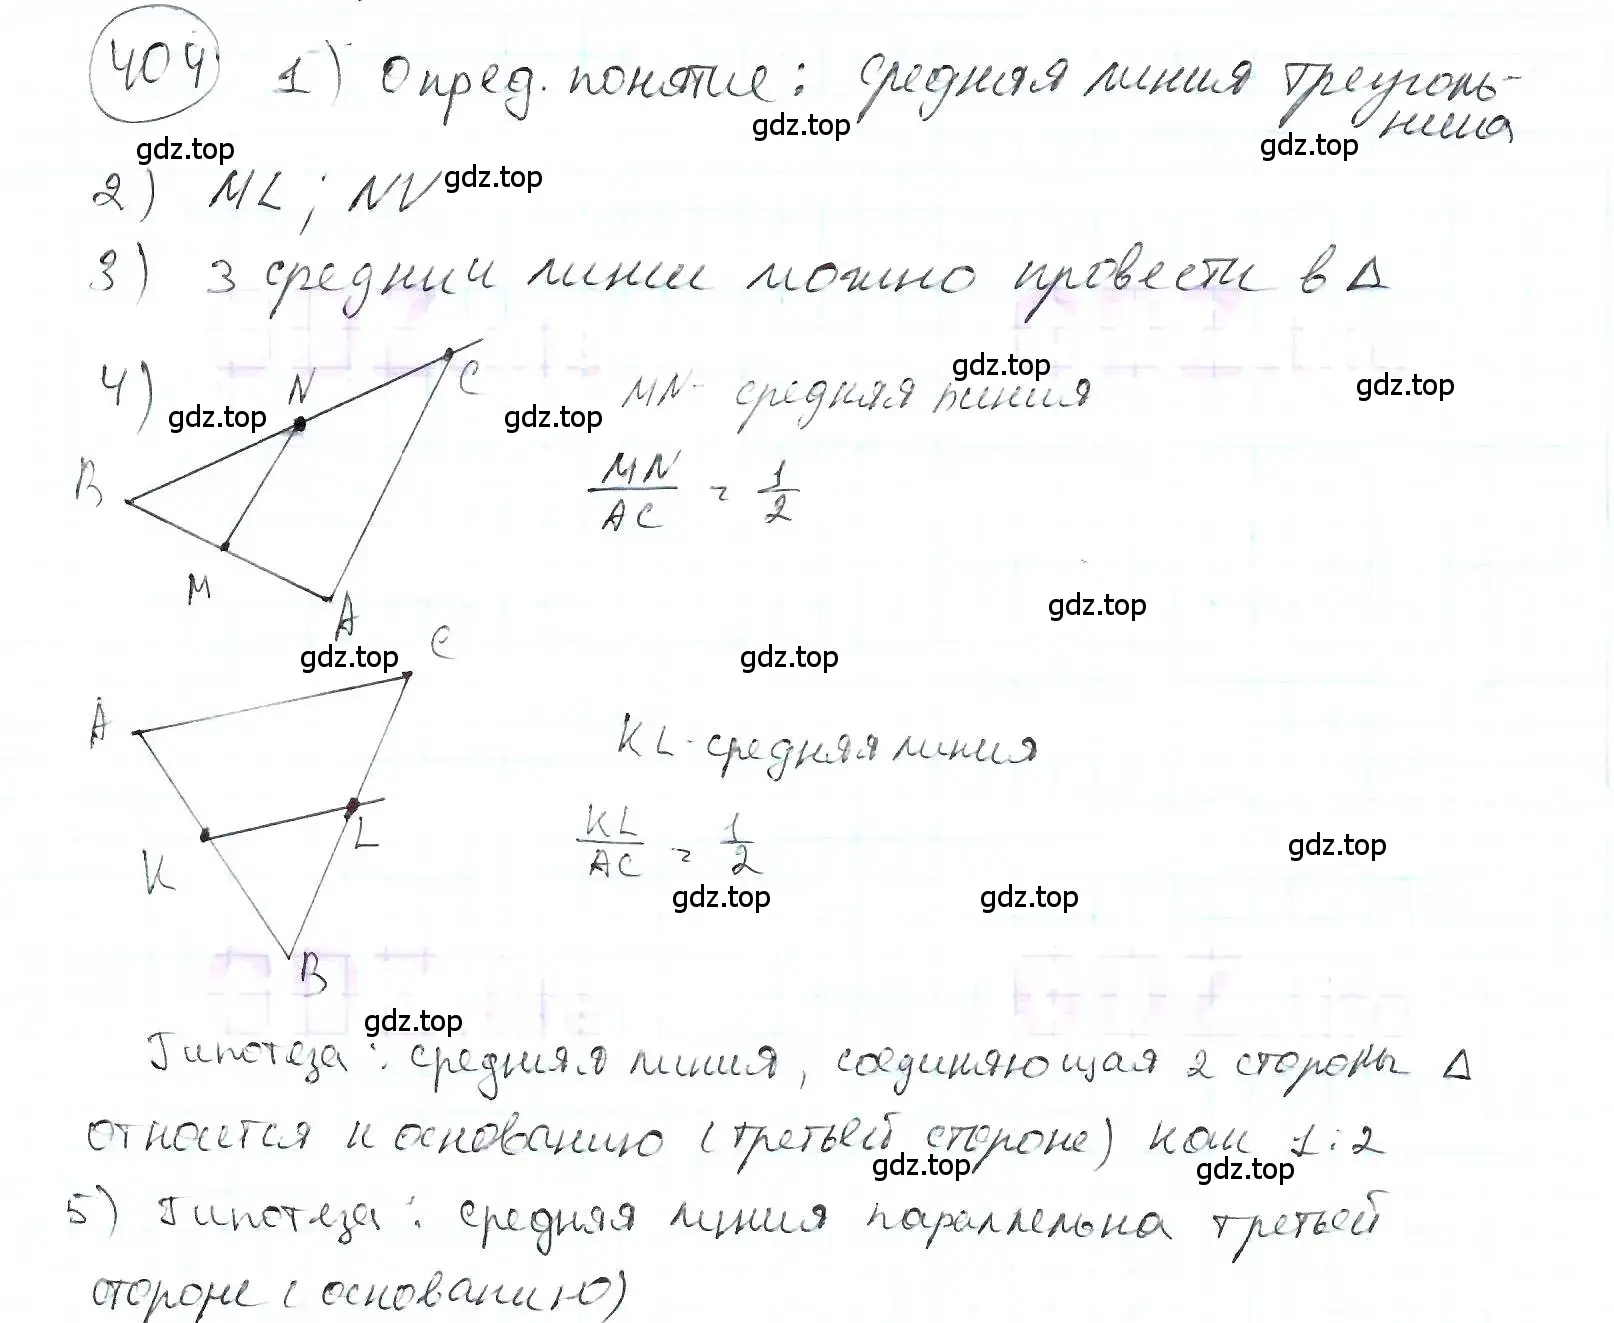 404 1) Опред. понятие: средняя линия треуголь-
ника
gdz.top gdz.top gdz.top
2) ML; NV gdz.top
3) 3 средних линии можно провести в Δ
4) N C MN - средняя линия
gdz.top gdz.top gdz.top gdz.top
B MN/AC = 1/2
M A
gdz.top
gdz.top gdz.top
C
A KL - средняя линия
K L KL/AC = 1/2
gdz.top
gdz.top gdz.top
B
gdz.top
Гипотеза: средняя линия, соединяющая 2 стороны Δ
относится к основанию (третьей стороне) как 1:2
gdz.top gdz.top
5) Гипотеза: средняя линия параллельна третьей
стороне (основанию)